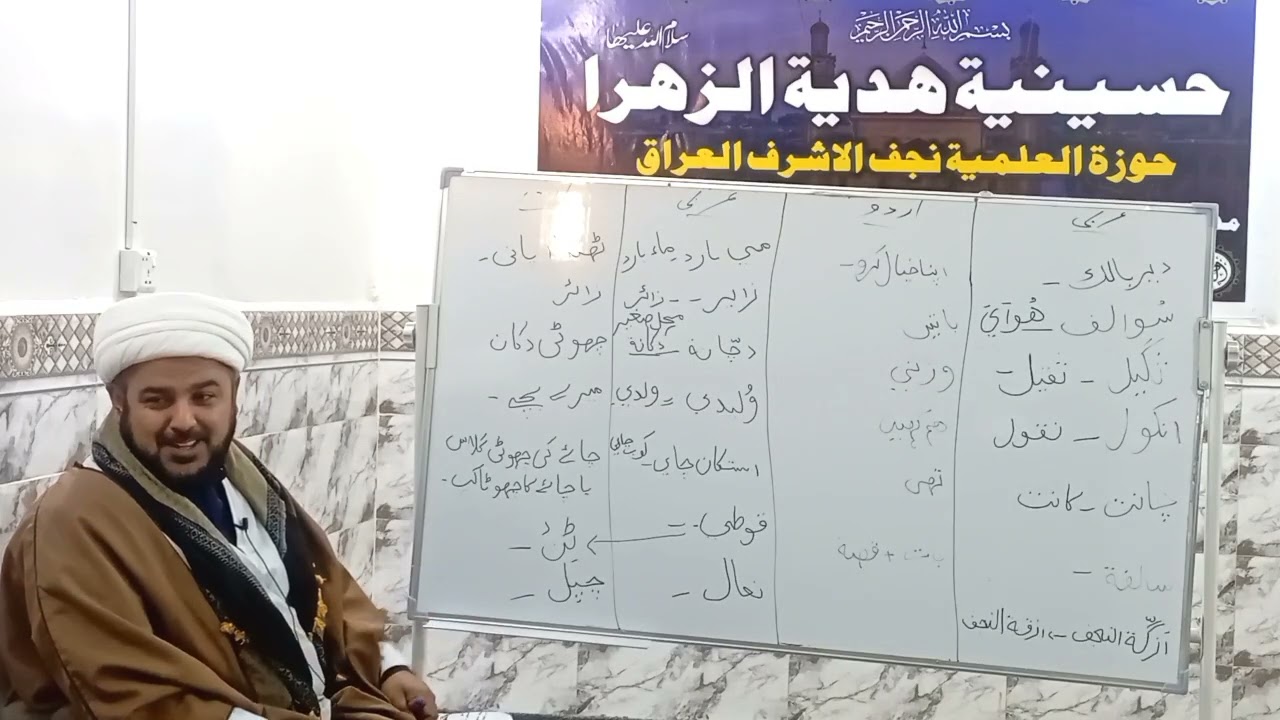 بسم الله الرحمن الرحيم
سلام الله عليها
حسينية هدية الزهرا
حوزة العلمية نجف الاشرف العراق
عربی اردو عربی
دیر بالك - اپنا خیال کرو - مي بارد ماء بارد پانی -
سُوالف هُوَايَ باتیں زایر -- زائر زائر
ثکیل - ثقیل وزنی دچانة دكانة محل صغیر چھوٹی دکان
انکول - نقول ہم کہیں وُلیدي = ولدي میرے بچے -
چانت - كانت تھی استکان چاي - کوب چائی چائے کی چھوٹی گلاس
یا چائے کا چھوٹا کپ -
سالفة - بات + قصة قوطی - ٹن -
ازگة النجف - ازقة النجف نعال - چپل -